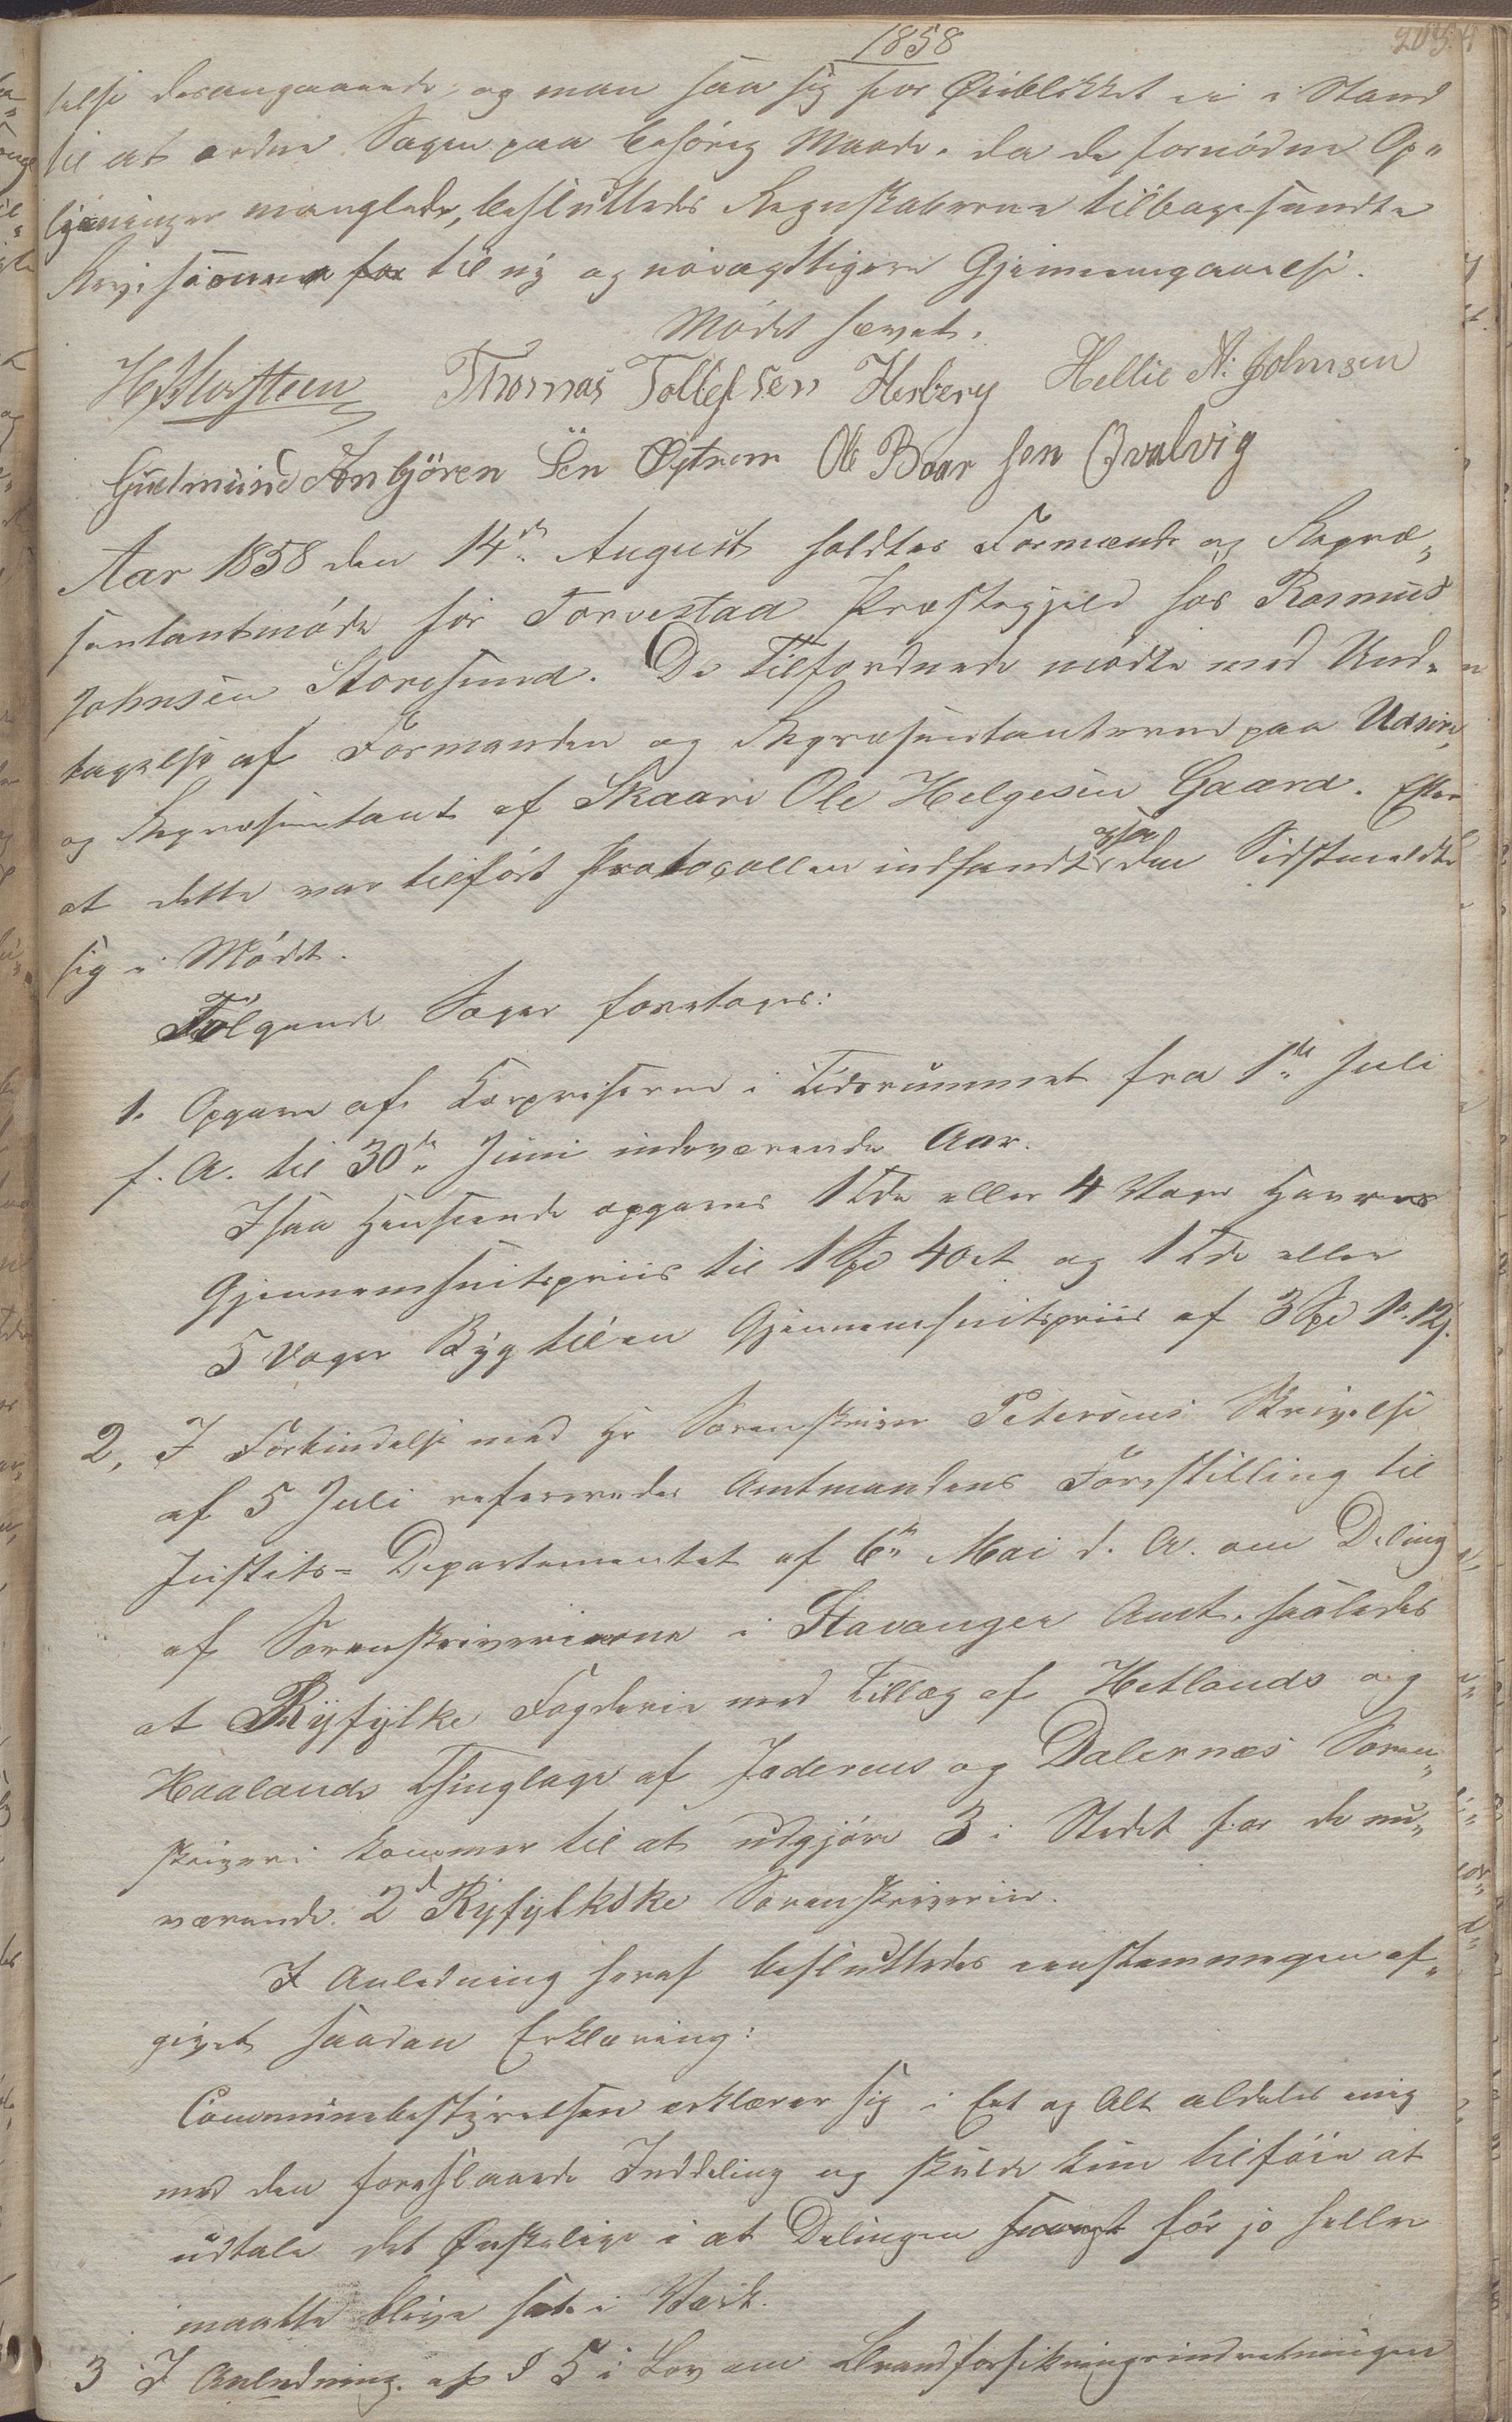 1858
telse desangaaende, og man saa sig for Øieblikket ei i Stand
til at ordne Sagen paa behörig Maade, da de fornödne Op„
lysninger manglede, besluttedes Regnskaberne tilbagesendte
Revisionen for til ny og nöiagtigere Gjennemgaaelse.
Mödet hævet.
Thomas Tollefsen Hesberg Hellie N: Johnsen
Gudmund Anbjören Sen Øytrem Ole Baar sen Qvalvig
Aar 1858 den 14de August holdtes Formænds og Repræ„
sentantmöde for Torvestad Præstegjeld hos Rasmus
Johnsen Storesund. De Tilforordnede mödte med Und„
tagelse af Formanden og Repræsentanterne paa Udsire,
og Repræsentant af Skaare Ole Helgesen Gaard. Efter
at dette var tilfört Protocollen indfandt ogsaa den Sidstmeldte
sig i Mödet.
Fölgende Sager foretoges:
1. Opgave af Kornpriserne i Tidsrummet fra 1ste Juli
f. A. til 30te Juni indeværende Aar.
I saa Henseende opgaves 1 Tde eller 4 Voger Havres
Gjennemsnitspriis til 1 Spd 40 ct og 1 Tde eller
5 Voger Byg til en Gjennemsnitspriis af 3 Spd 1 12
2, I Forbindelse med Hr Sorenskriver Petersens Skrivelse
af 5 Juli refereredes Amtmandens Forestilling til
Justits- Departementet af 6te Mai d. A. om Deling
af Sorenskriverierne i Stavanger Amt, saaledes
at Ryfylke Fogderie med Tillæg af Hetlands og
Haalands Thinglage af Jæderens og Dalernes Soren„
skriveri kommer til at udgjöre 3 i Stedet for de nu„
værende 2d Ryfylkske Sorenskriverier.
I Anledning heraf besluttedes eenstemmigen af„
givet saadan Erklæring:
Communebestyrelsen erklærer sig i Eet og Alt aldeles enig
med den foreslaaede Inddeling og skulde kun tilföie at
udtale det Önskelige i at Delingen för jo heller
maatte blive sat i Værk.
3 I Anledning af § 5 i Lov om Brandforsikringsindretningen